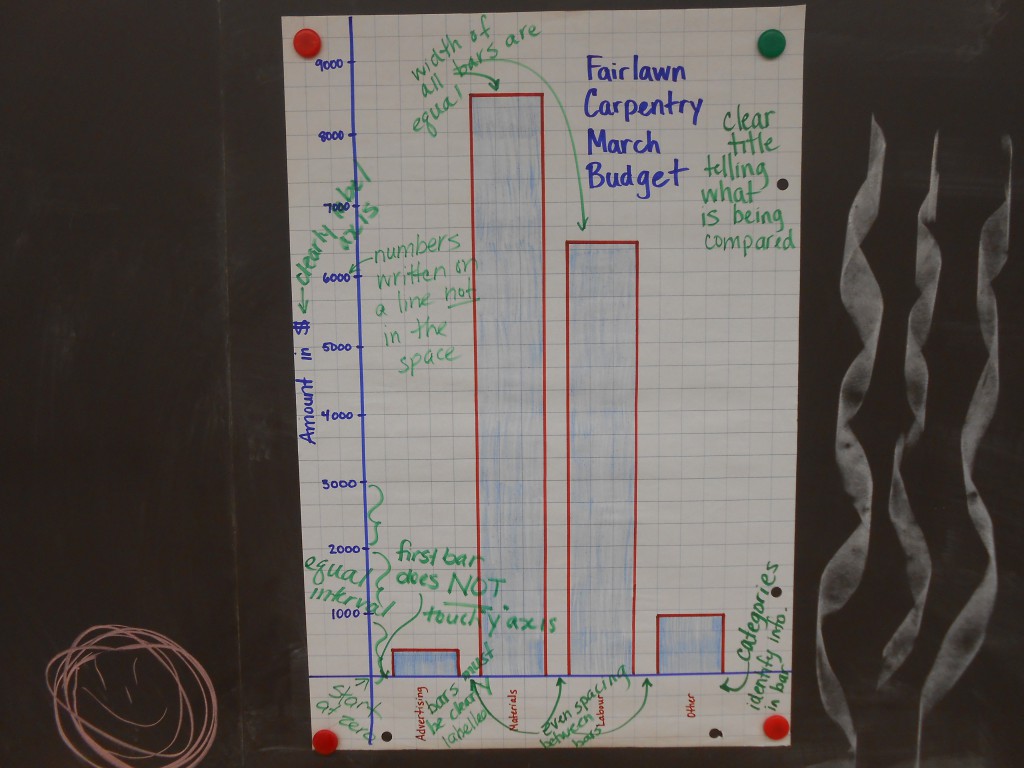 width of
all bars are
equal
Fairlawn
Carpentry
March
Budget
clear
title
telling
what
is being
compared
9000
8000
7000
6000
5000
4000
3000
2000
1000
clearly label
axis
Amount in $
numbers
written on
a line not
in the
space
equal
interval
first bar
does NOT
touch y axis
start
at
zero
Advertising
Materials
Labour
Other
bars must
be clearly
labelled
Even spacing
between
bars
categories
identify info.
in bar